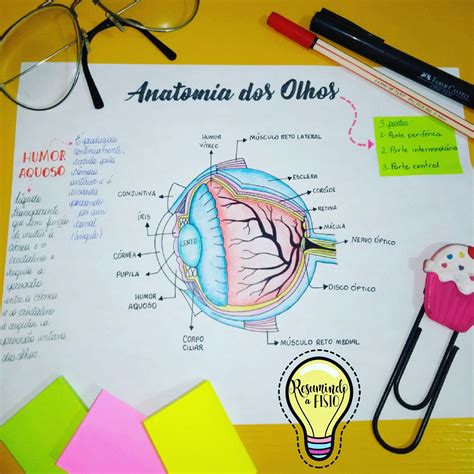 Anatomia dos Olhos
HUMOR
AQUOSO
líquido
transparente
que tem função
de nutrir a
córnea e o
cristalino e
regular a
pressão
entre a córnea
e o cristalino
pressão interna
dos olhos.
É produzido
continuamente,
pela
câmara
anterior e
por um
canal
(ângulo)
3 partes:
1. Parte periférica
2. Parte intermediária
3. Parte central
HUMOR
VÍTREO
MÚSCULO RETO LATERAL
ESCLERA
CORÓIDE
RETINA
MÁCULA
NERVO ÓPTICO
DISCO ÓPTICO
MÚSCULO RETO MEDIAL
CONJUNTIVA
ÍRIS
CÓRNEA
PUPILA
HUMOR
AQUOSO
CORPO
CILIAR
LENTE
Resumindo
a FISIO